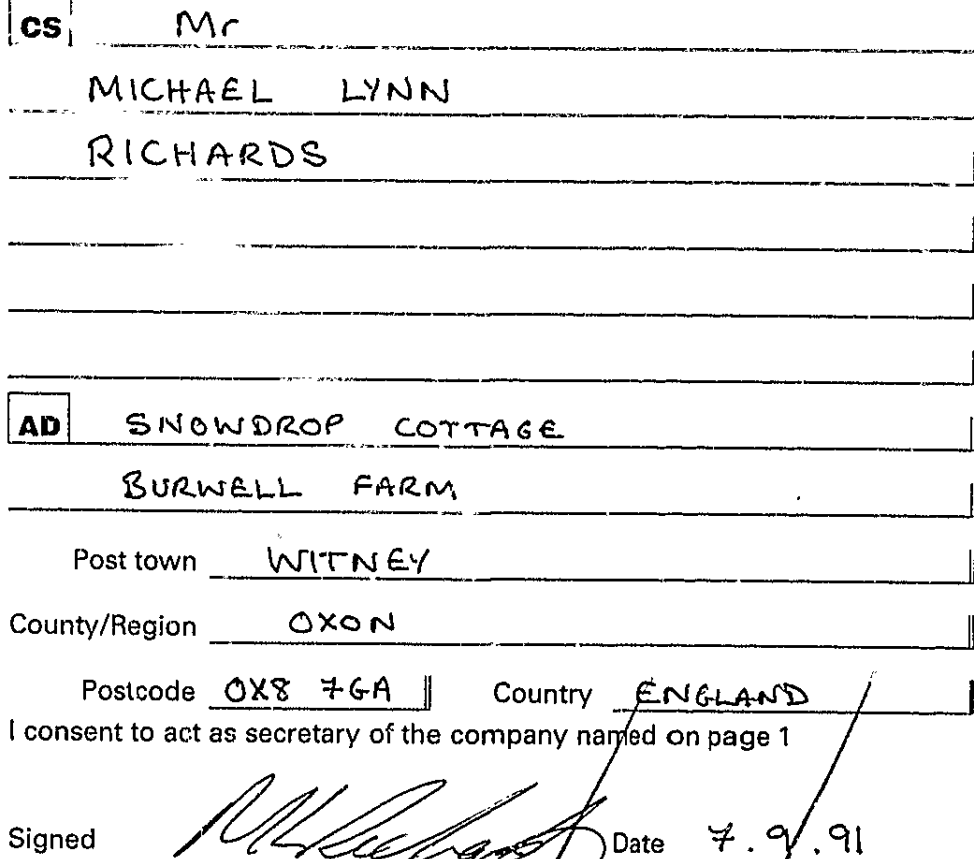 CS Mr
MICHAEL LYNN
RICHARDS
AD SNOWDROP COTTAGE
BURWELL FARM
Post town WITNEY
County/Region OXON
Postcode OX8 7GA Country ENGLAND
I consent to act as secretary of the company named on page 1
Signed MLRichards Date 7.9.91